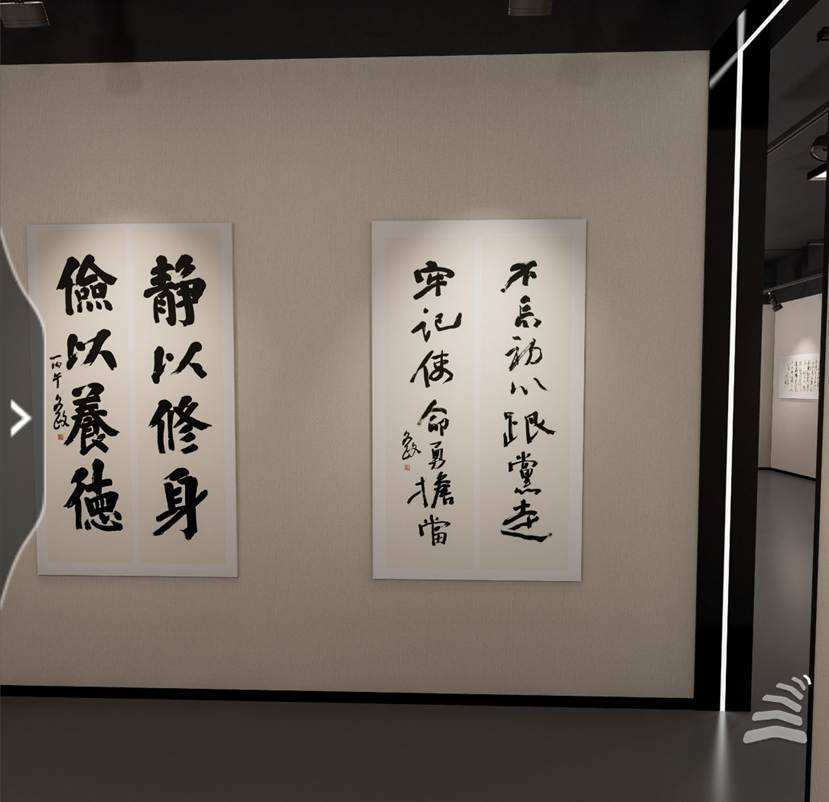 靜以修身
儉以養德
丙午
不忘初心跟黨走
牢記使命勇擔當